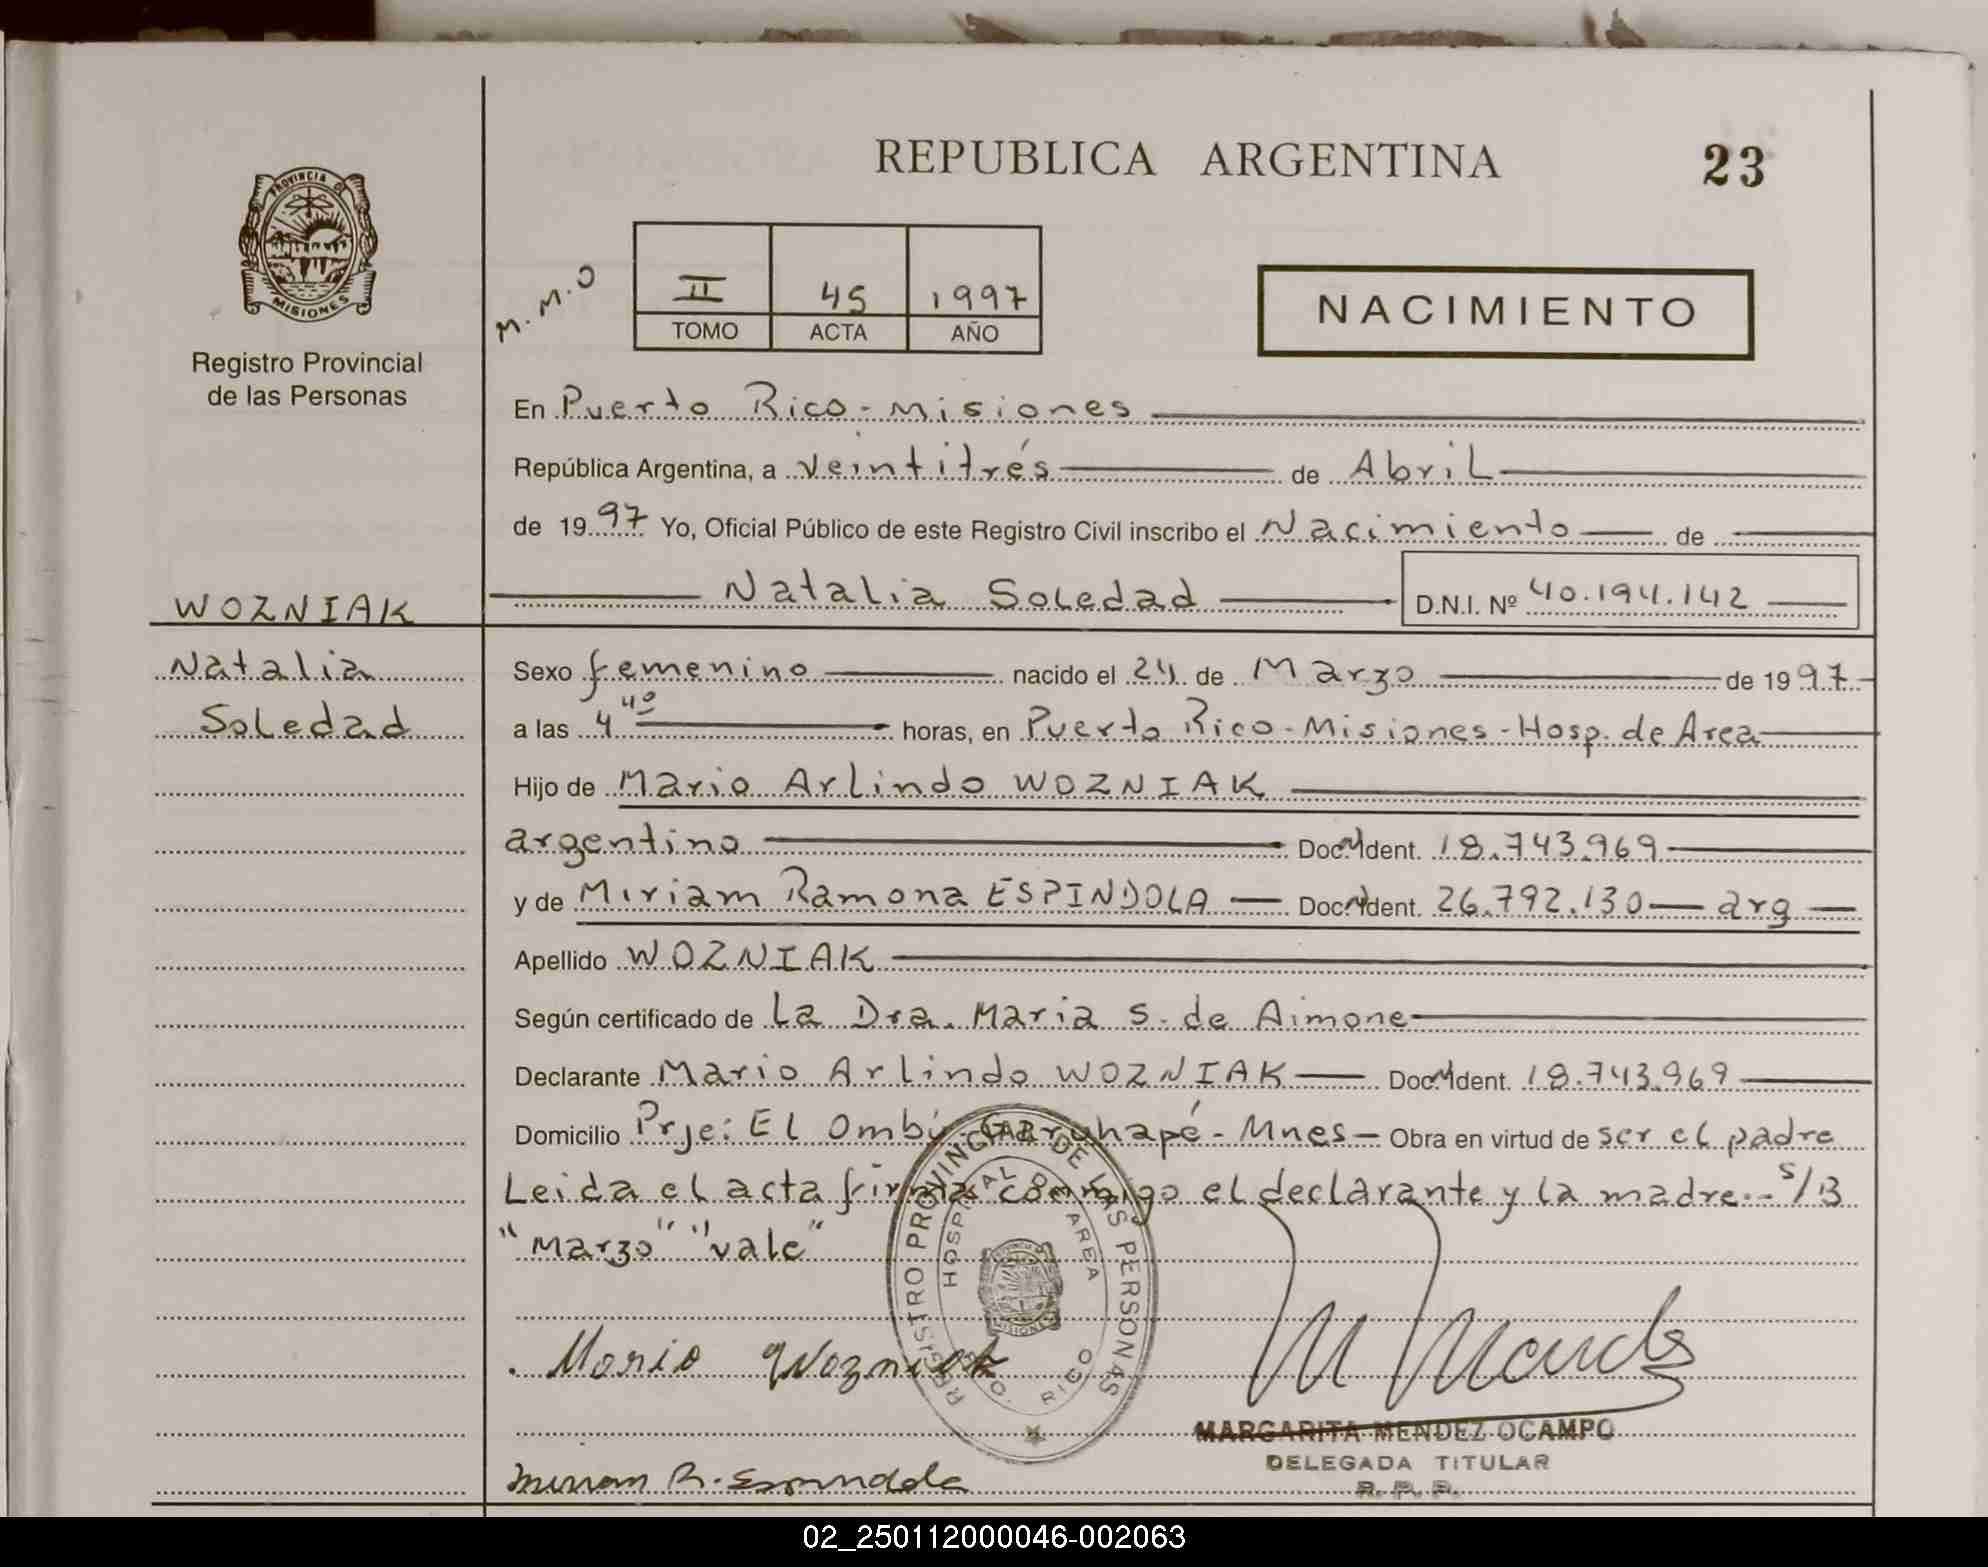 REPUBLICA ARGENTINA
23
PROVINCIA DE
MISIONES
Registro Provincial
de las Personas
M.M.O
II 45 1997
TOMO ACTA AÑO
NACIMIENTO
En Puerto Rico - Misiones
República Argentina, a veintitrés de Abril
de 1997 Yo, Oficial Público de este Registro Civil inscribo el Nacimiento de
WOZNIAK
Natalia Soledad D.N.I. Nº 40.194.142
Natalia
Sexo femenino nacido el 24 de Marzo de 1997
Soledad
a las 4 40 horas, en Puerto Rico - Misiones - Hosp. de Area
Hijo de Mario Arlindo WOZNIAK
argentino Doc. Ident. 18.743.969
y de Miriam Ramona ESPINDOLA Doc. Ident. 26.792.130 arg
Apellido WOZNIAK
Según certificado de La Dra. Maria S. de Aimone
Declarante Mario Arlindo WOZNIAK Doc. Ident. 18.743.969
Domicilio Prje: El Ombú Garuhapé - Mnes - Obra en virtud de ser el padre
Leida el acta firma conmigo el declarante y la madre.- S/B
"Marzo" "vale"
REGISTRO PROVINCIAL DE LAS PERSONAS
HOSPITAL DE AREA
PTO. RICO
MISIONES
Mario Wozniak
M Mendez
MARGARITA MENDEZ OCAMPO
DELEGADA TITULAR
R. P. P.
Miriam R. Espindola
02_250112000046-002063